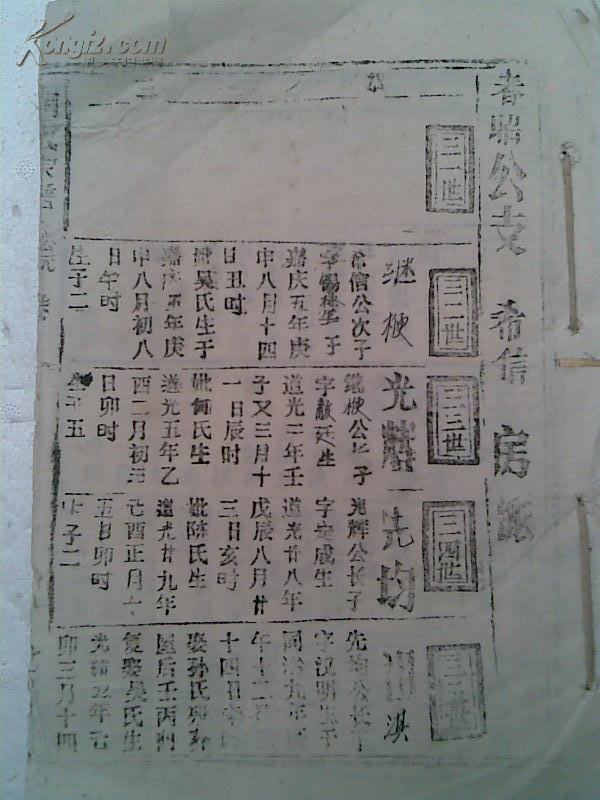 Kongfz.com
春昭公支 希信 房
三一世
三二世
继梗
希信公次子
字锡 生于
嘉庆五年庚
申八月十四
日丑时
妣吴氏生于
嘉庆五年庚
申八月初八
日午时
生子二
三三世
光辉
继梗公长子
字献廷生
道光二年壬
子又三月十
一日辰时
妣何氏生
道光五年乙
酉二月初
日卯时
生子五
三四世
先均
光辉公长子
字定成生
道光廿八年
戊辰八月廿
三日亥时
妣陈氏生
道光廿九年
己酉正月十
五日卯时
生子二
三五世
淇
先均公长子
字汉明生于
同治九年庚
午十二月
十四日
娶孙氏殁葬
屋后壬丙向
复娶吴氏生
光绪五年己
卯三月十四